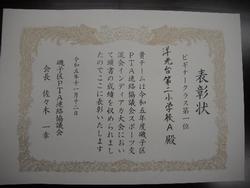 表彰状
ビギナークラス第一位
洋光台第二小学校A 殿
貴チームは令和五年度磯子区
PTA連絡協議会スポーツ交
流会インディアカ大会におい
て頭書の成績を収められまし
たのでここに表彰いたします
令和五年十一月十二日
磯子区PTA連絡協議会
会長 佐々木 一幸